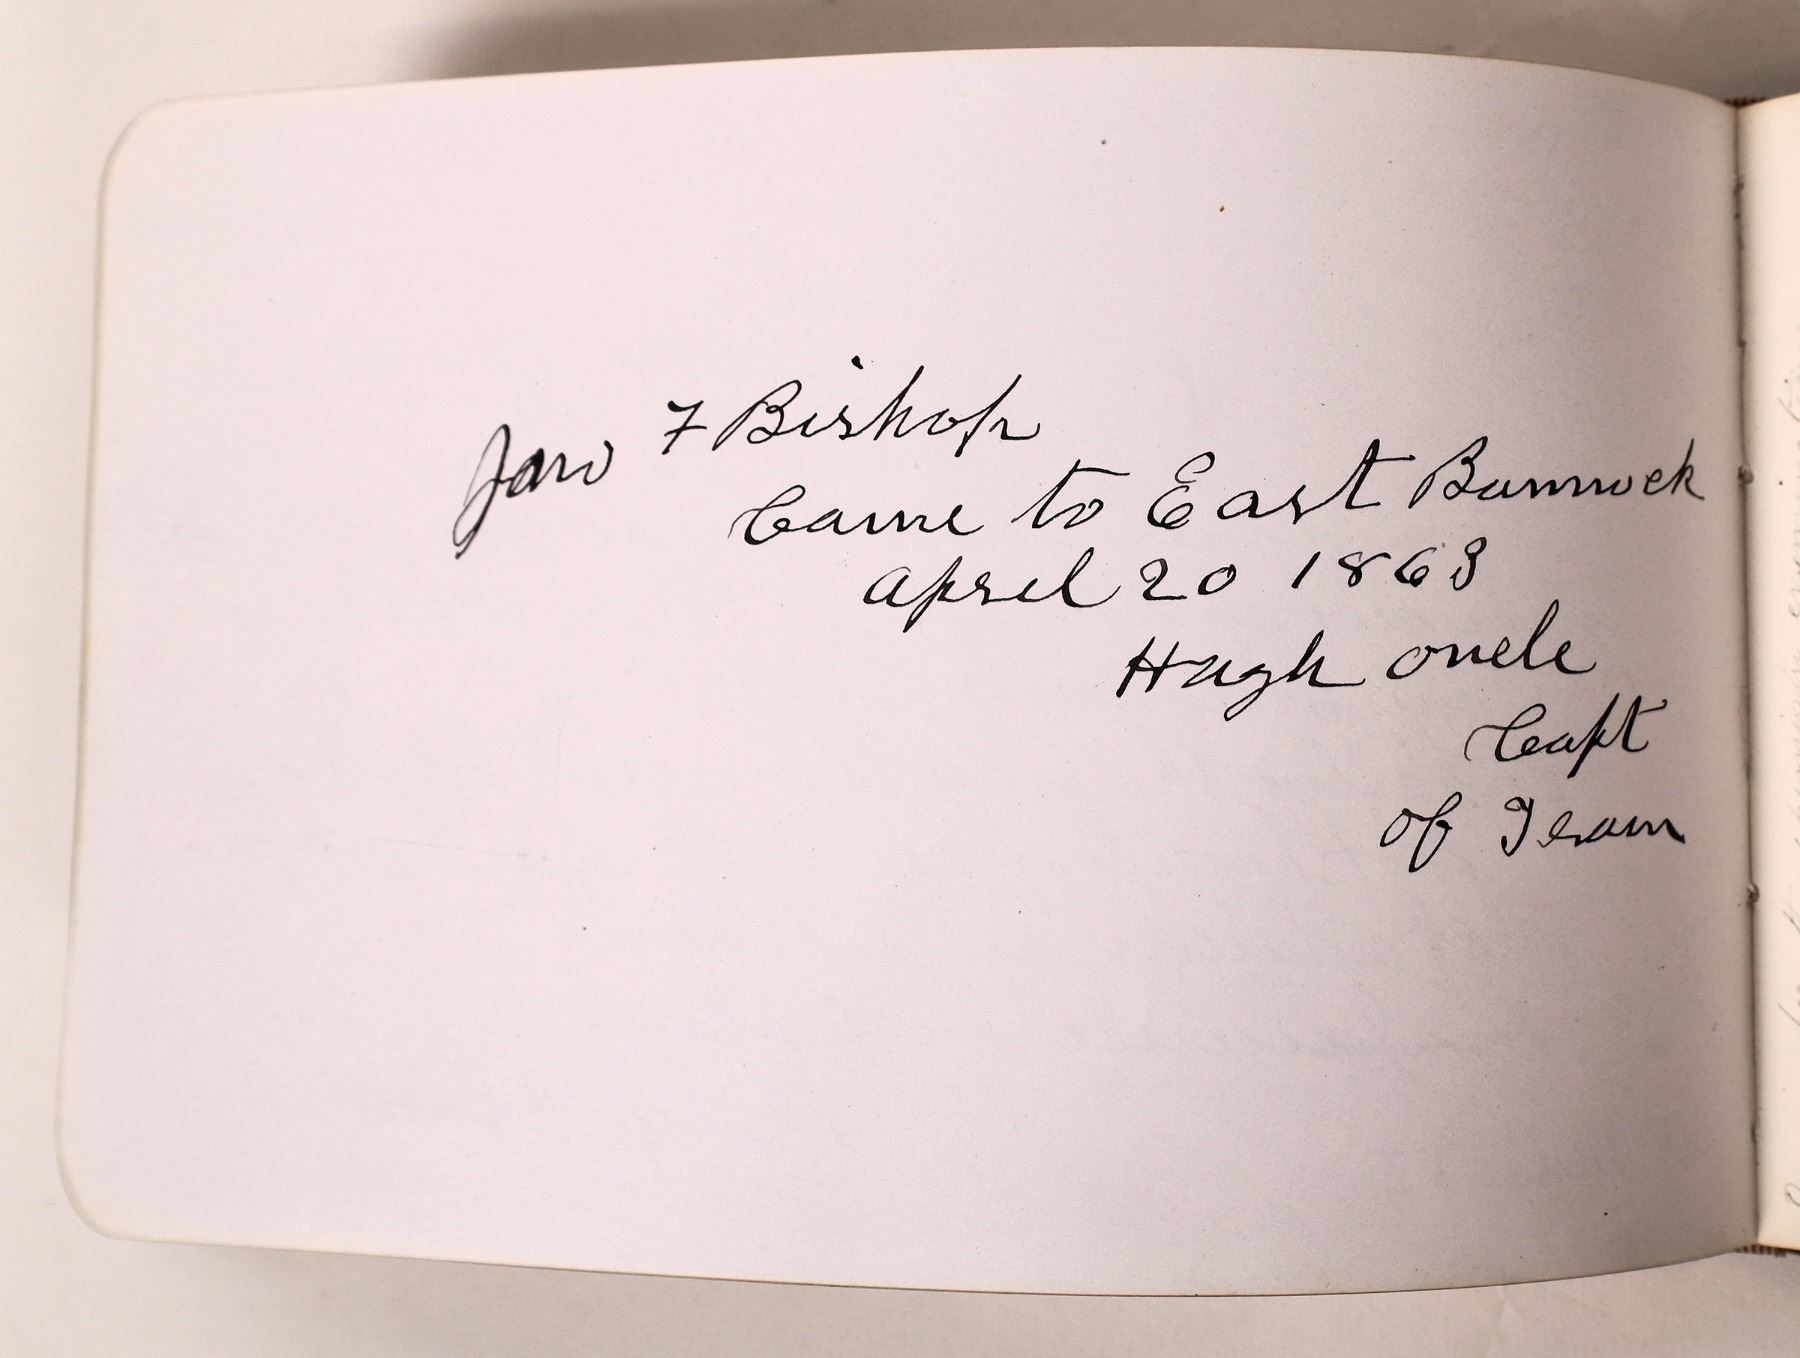 Jno F Bishop
Came to East Bannack
April 20 1863
Hugh onele
Capt
of Team